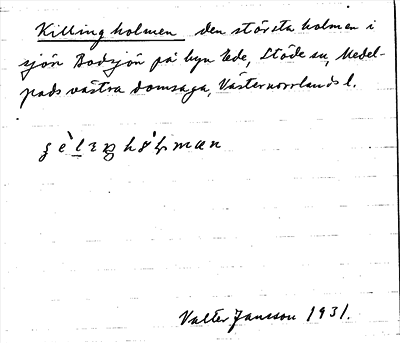 Killingholmen den största holmen i
sjön Bodsjön på byn Ede, Stöde sn, Medel-
pads västra domsaga, Västernorrlands l.
Valter Jansson 1931.